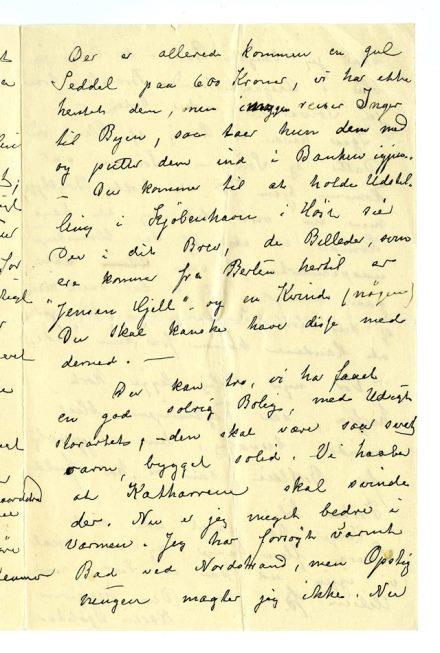 Der er allerede kommen en gul
Seddel paa 600 Kroner, vi har ikke
hentet dem, men reiser Inger
til Byen, saa tær hun dem med
og putter dem ind i Banken igjen.
— Du kommer til at holde Udstil-
ling i Kjøbenhavn i Høst sier
Du i dit Brev, de Billeder, som
ere kommet fra Berlin hertil er
"Jensen Hjell" og en Kvinde (nøgen)
Du skal kanske have disse med
derned. —
Du kan tro, vi ha faaet
en god solrig Bolig, med Udsigt
storartet, – den skal være saa svært
varm, bygget solid. Vi haaber
at Katharren skal svinde
der. Nu er jeg meget bedre i
Varmen. Jeg har forsøgt varmt
Bad ved Nordstrand, men Opstig
ningen magter jeg ikke. Nu